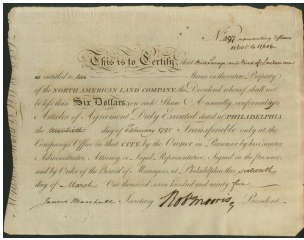 No. 397 representing Shares
11605 to 11606
This is to Certify, that Bird Savage and Bird of London are
entitled to two Shares in the entire Property
of the NORTH AMERICAN LAND COMPANY; the Dividend whereof shall not
be less than Six Dollars, on each Share Annually, conformably to
Articles of Agreement Duly Executed; dated at PHILADELPHIA
the twentieth day of February 1795 Transferable only at the
Company's Office in that CITY, by the Owner in Person or by his executor,
Administrator, Attorney or Legal Representative. Signed in the presence
and by Order of the Board of Managers, at Philadelphia this sixteenth
day of March One thousand seven hundred and ninety five
James Marshall Secretary Robt Morris President